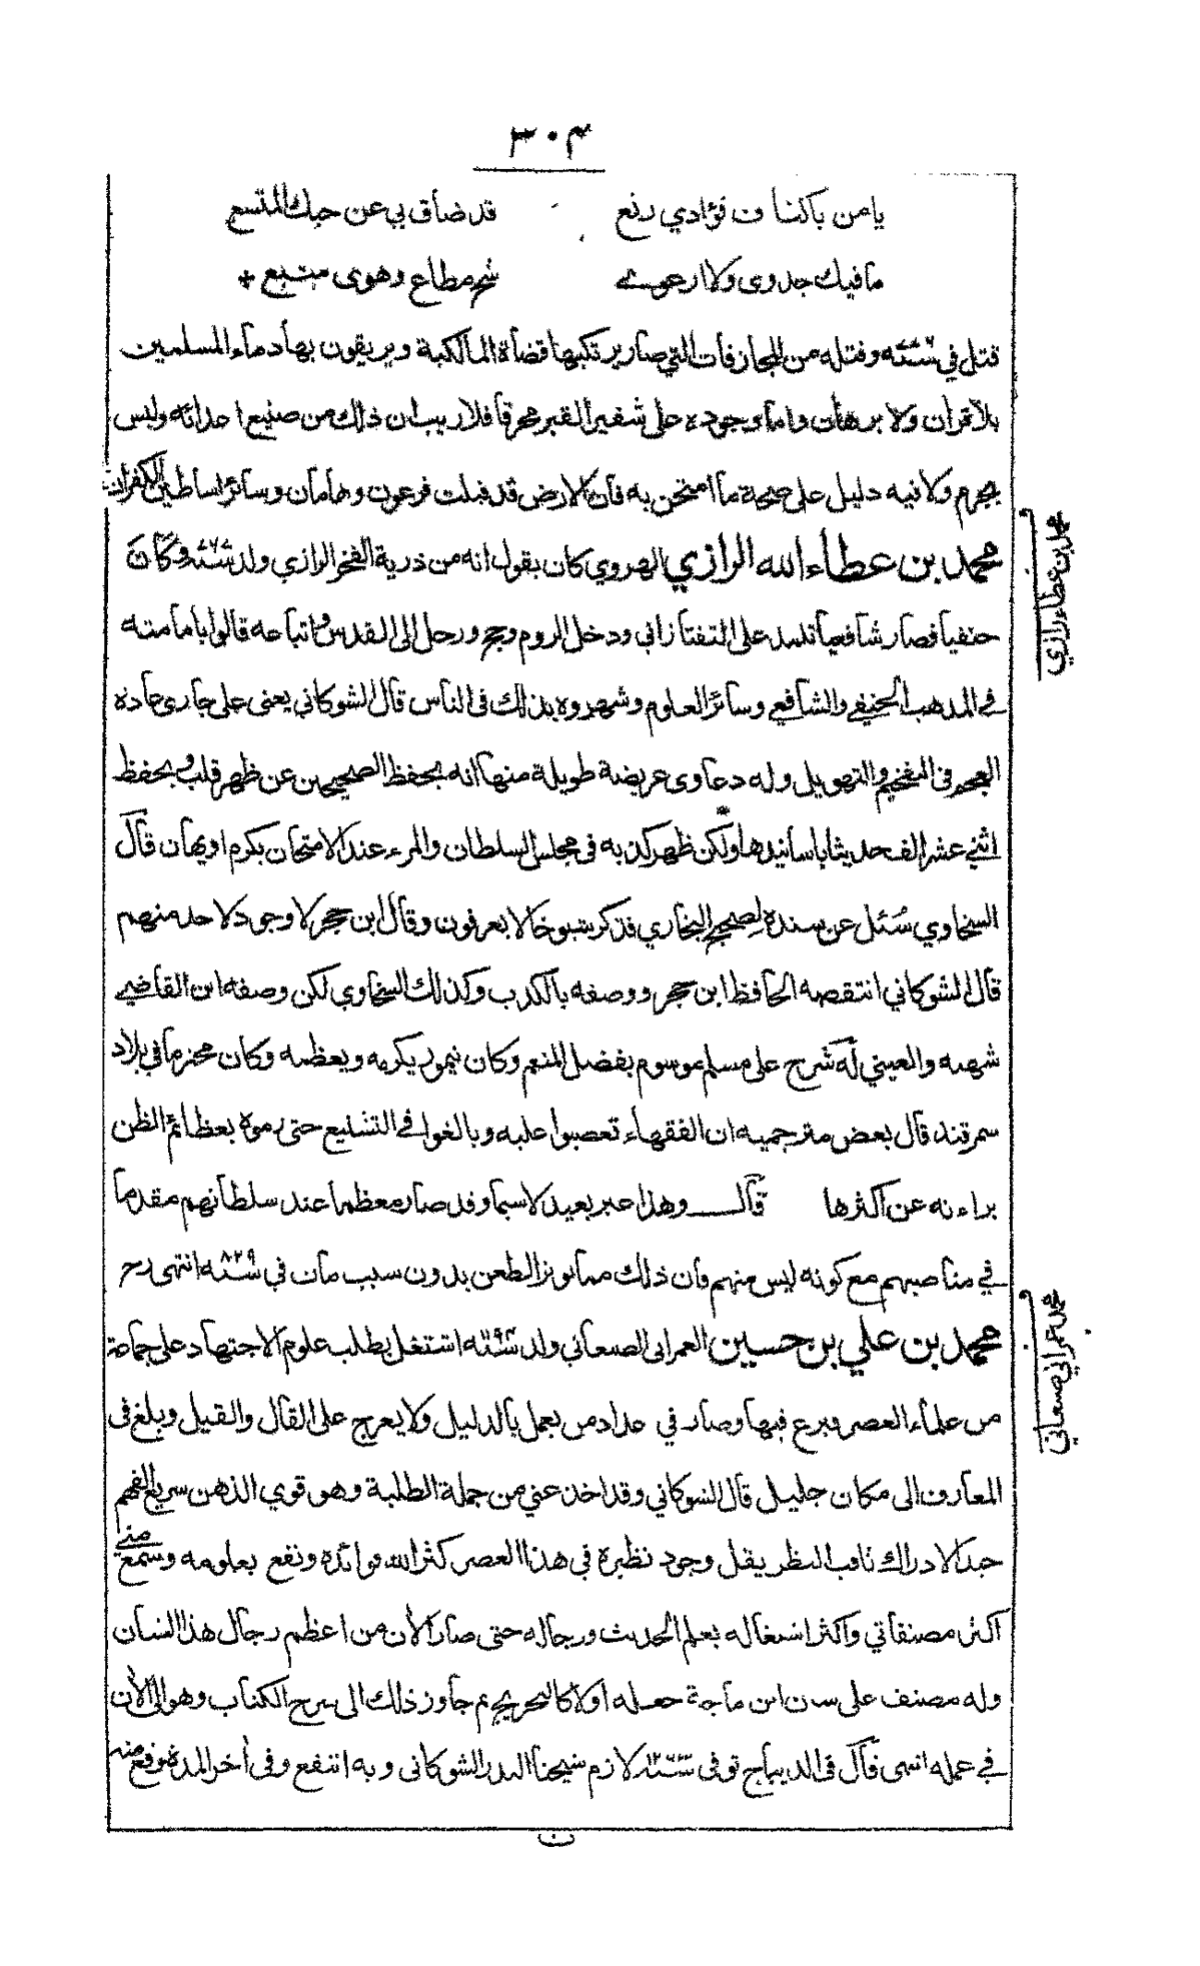 ٣٠٤
يا من باكناف فؤادي رتع قد ضاق بي عن حبك المتسع
ما فيك جدوى ولا ارعوى شح مطاع وهوى متبع +
قتل في سنة وقتله من المجازفات التي صار يرتكبها قضاة المالكية ويريقون بها دماء المسلمين
بلا قرآن ولا برهان واما وجوده على شفير القبر محرقا فلا ريب ان ذلك من صنيع اعدائه وليس
بجرم ولا فيه دليل على صحة ما امتحن به فان الارض قد قبلت فرعون وهامان وسائر اساطين الكفران
محمد بن عطاء الله الرازي الهروي كان يقول انه من ذرية الفخر الرازي ولد سنة ٧٦٧ وكان
حنفيا فصار شافعيا تلمذ على التفتازاني ودخل الروم وحج ورحل الى القدس واتباعه قالوا بامامته
في المذهب الحنفي والشافعي وسائر العلوم وشهروه بذلك في الناس قال الشوكاني يعني على جاري عادة
العجم في التفخيم والتهويل وله دعاوى عريضة طويلة منها انه يحفظ الصحيحين عن ظهر قلب ويحفظ
اثني عشر الف حديثا باسانيدها ولكن ظهر كذبه في مجلس السلطان والمرء عند الامتحان يكرم او يهان قال
السخاوي سُئل عن سنده لصحيح البخاري فذكر شيوخا لا يعرفون وقال ابن حجر لا وجود لاحد منهم
قال الشوكاني انتقصه الحافظ ابن حجر ووصفه بالكذب وكذلك السخاوي لكن وصفه ابن القاضي
شهبه والعيني له شرح على مسلم موسوم بفضل المنعم وكان تيمور يكرمه ويعظمه وكان محترما في بلاد
سمرقند قال بعض مترجميه ان الفقهاء تعصبوا عليه وبالغوا في التشنيع حتى رموه بعظائم الظن
براءته عن اكثرها قال وهذا غير بعيد لا سيما وقد صار معظما عند سلطانهم مقدما
في مناصبهم مع كونه ليس منهم فان ذلك مما يوثر الطعن بدون سبب مات في سنة ٨٢٩ انتهى رح
محمد بن علي بن حسين العمراني الصنعاني ولد سنة اشتغل بطلب علوم الاجتهاد على جماعة
من علماء العصر وبرع فيها وصار في عداد من يعمل بالدليل ولا يعرج على القال والقيل وبلغ في
المعارف الى مكان جليل قال الشوكاني وقد اخذ عني من جملة الطلبة وهو قوي الذهن سريع الفهم
جيد الادراك ثاقب النظر يقل وجود نظيره في هذا العصر كثر الله فوائده ونفع بعلومه وسمع مني
اكثر مصنفاتي واكثر اشتغاله بعلم الحديث ورجاله حتى صار الآن من اعظم رجال هذا الشان
وله مصنف على سنن ابن ماجة جعله اولا كالتخريج ثم جاوز ذلك الى شرح الكتاب وهو الى الآن
في عمله انتهى قال في الديباج توفي سنة لازم شيخنا البدر الشوكاني وبه انتفع وفي آخر المدة وقع منه
محمد بن عطاء رازي
محمد عمراني صنعاني